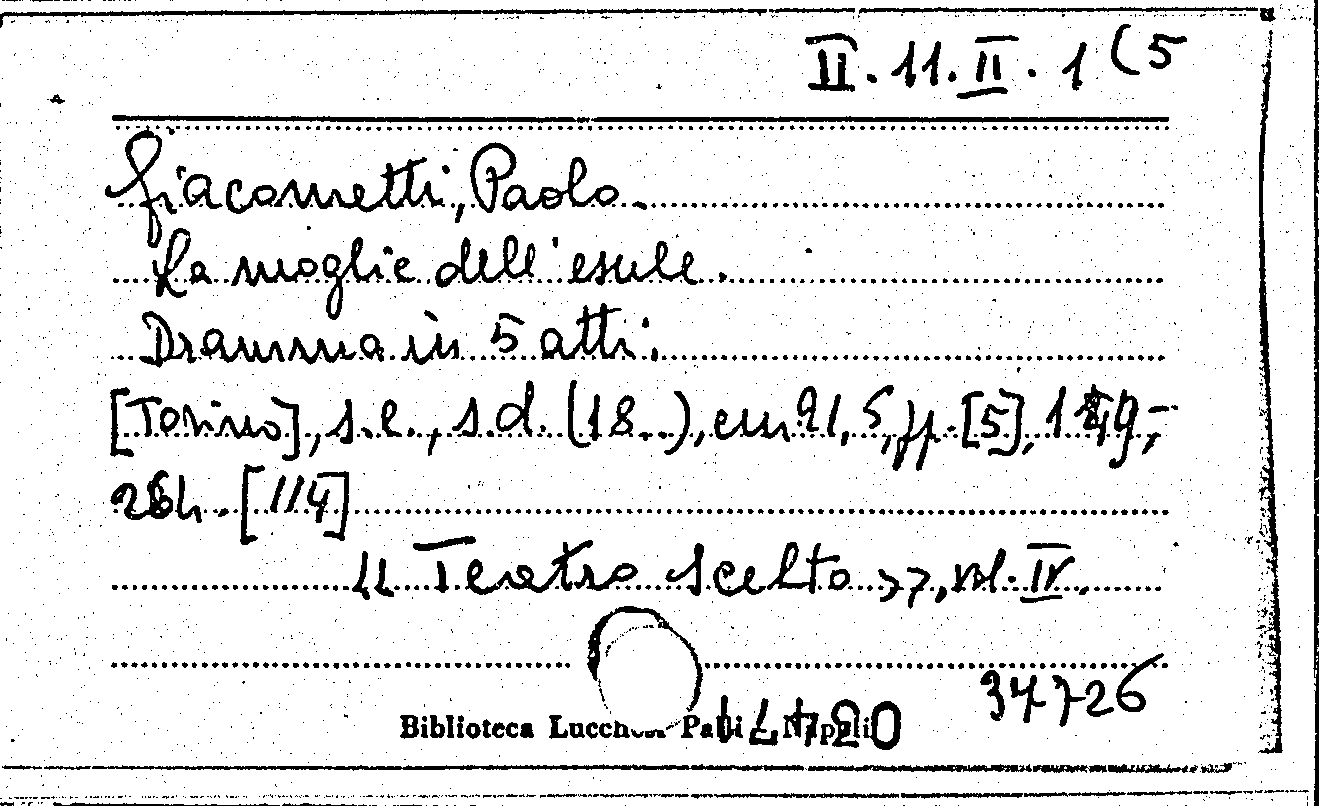 II. 11. II. 1 (5
Giacometti, Paolo.
La moglie dell'esule.
Dramma in 5 atti.
[Torino], s.e., s.d. (18..), cm 21,5, pp. [5],
[114]
"Teatro scelto", vol. IV.
37726
Biblioteca Lucchesi Palli Napoli